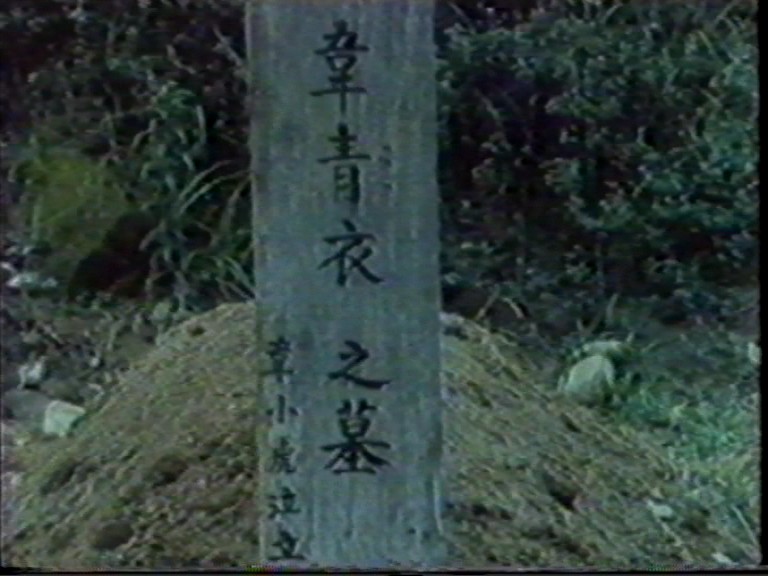 韋青衣之墓
韋小虎泣立